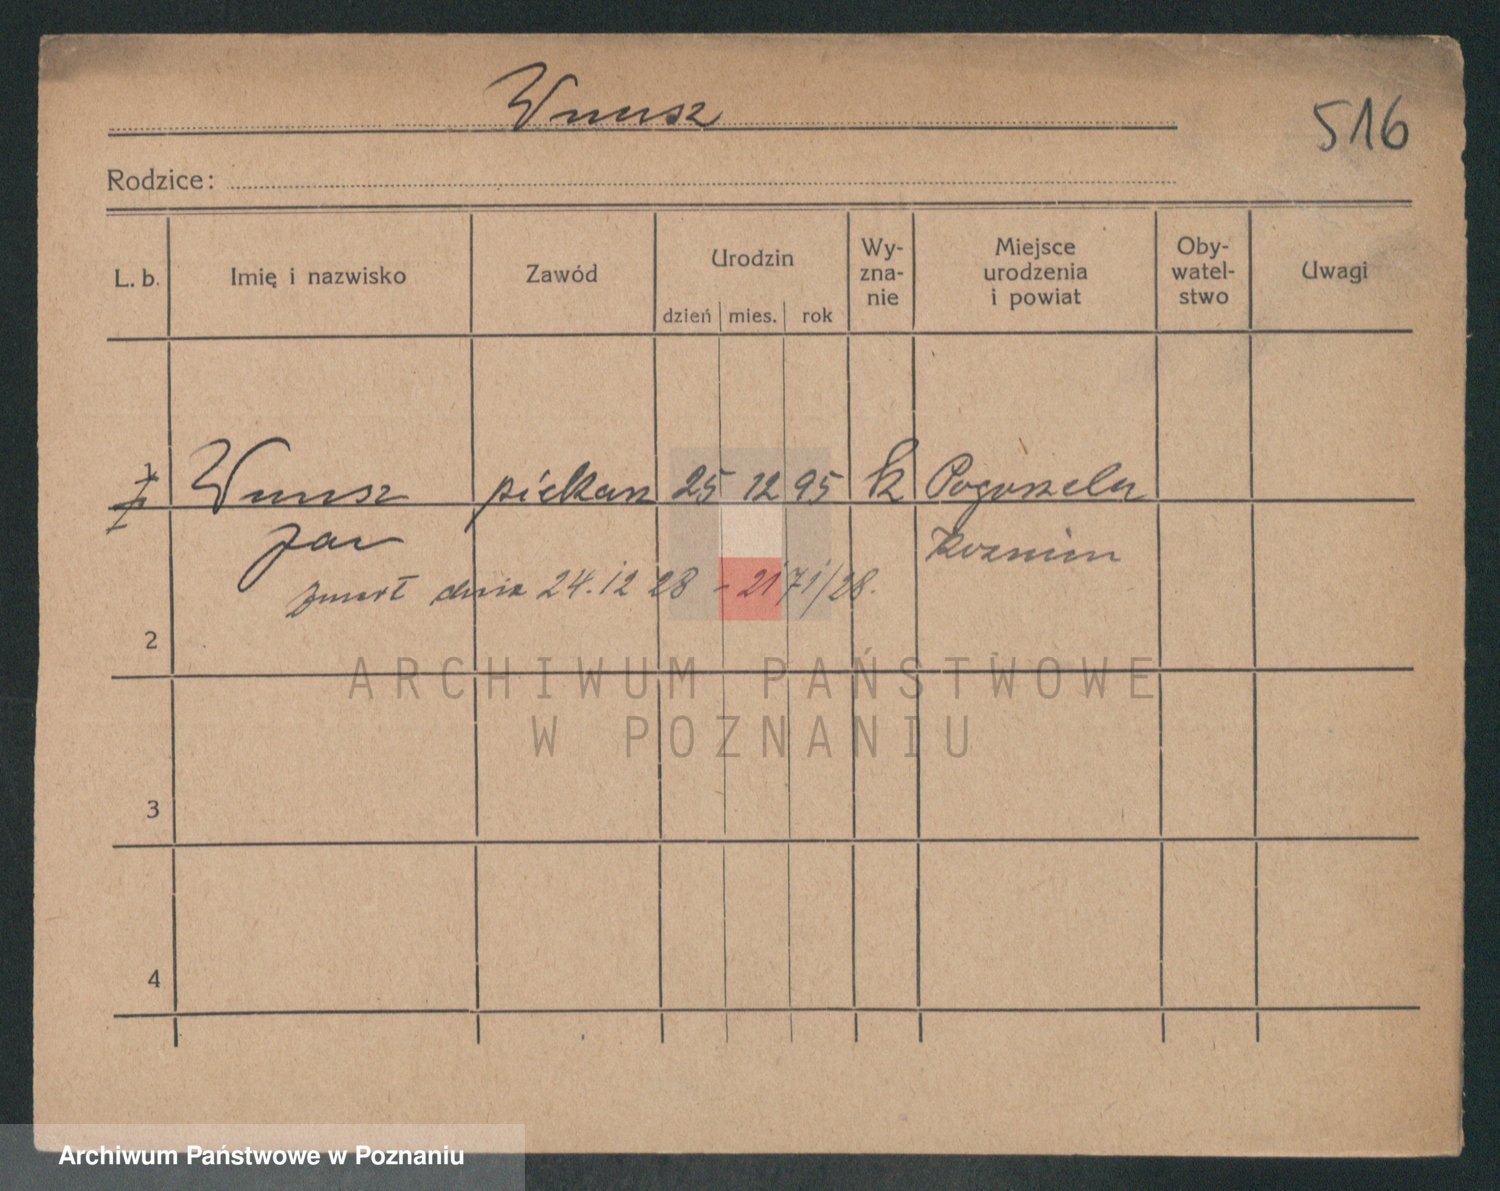 Wnusz
516
Rodzice:
L. b. Imię i nazwisko Zawód Urodzin dzień mies. rok Wy-zna-nie Miejsce urodzenia i powiat Oby-watel-stwo Uwagi
1 Wnusz piekarz 25 12 95 k Pogorzela
Jan Koźmin
zmarł dnia 24.12 28 - 2171/28.
2
3
4
ARCHIWUM PAŃSTWOWE
W POZNANIU
Archiwum Państwowe w Poznaniu